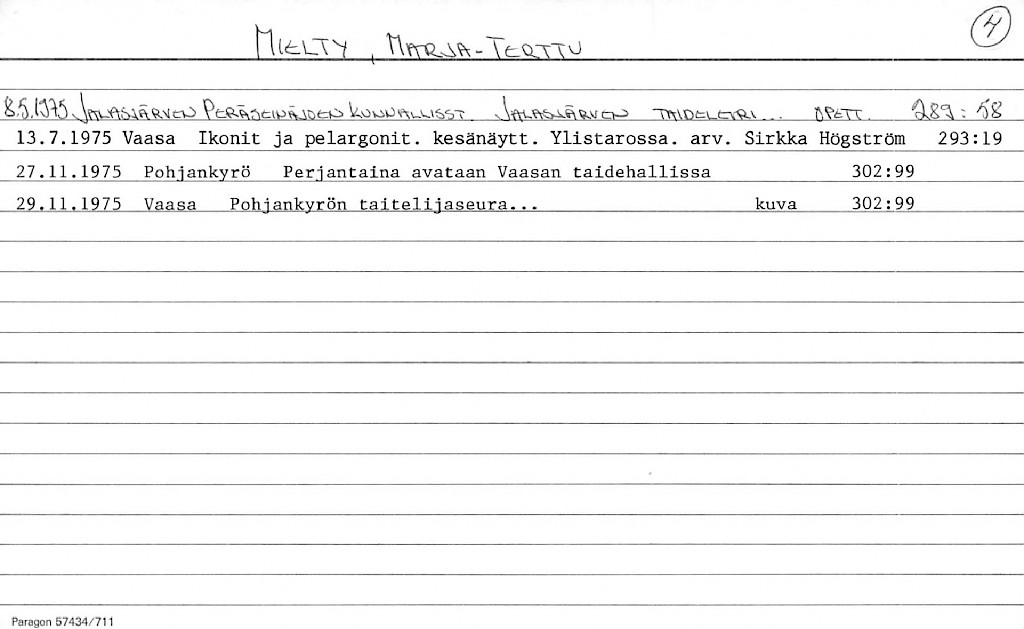 4
MIELTY, MARJA-TERTTU
8.5.1975 JALASJÄRVEN PERÄSEINÄJOEN KUNNALLISST. JALASJÄRVEN TAIDELEIRI... OPETT. 289:58
13.7.1975 Vaasa Ikonit ja pelargonit. kesänäytt. Ylistarossa. arv. Sirkka Högström 293:19
27.11.1975 Pohjankyrö Perjantaina avataan Vaasan taidehallissa 302:99
29.11.1975 Vaasa Pohjankyrön taitelijaseura... kuva 302:99
Paragon 57434/711